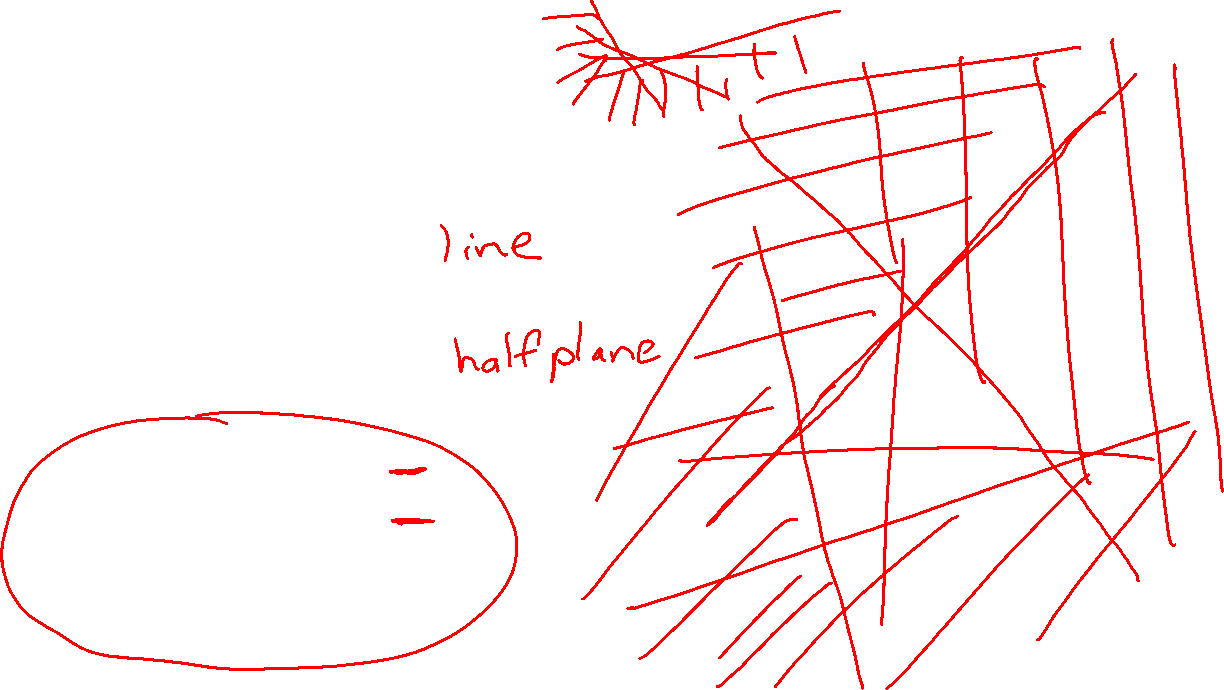 line
halfplane